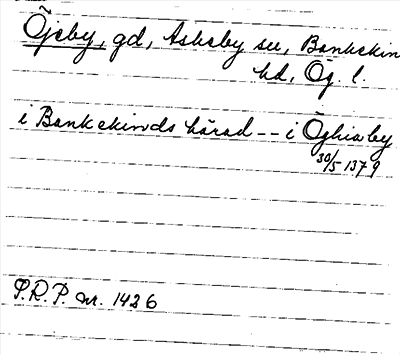 Öjeby, gd, Askeby sn, Bankekin
hd, Ög. l.
i Bankekinds härad -- i Öghiaby
30/5 1379
S.R.P. nr. 1426